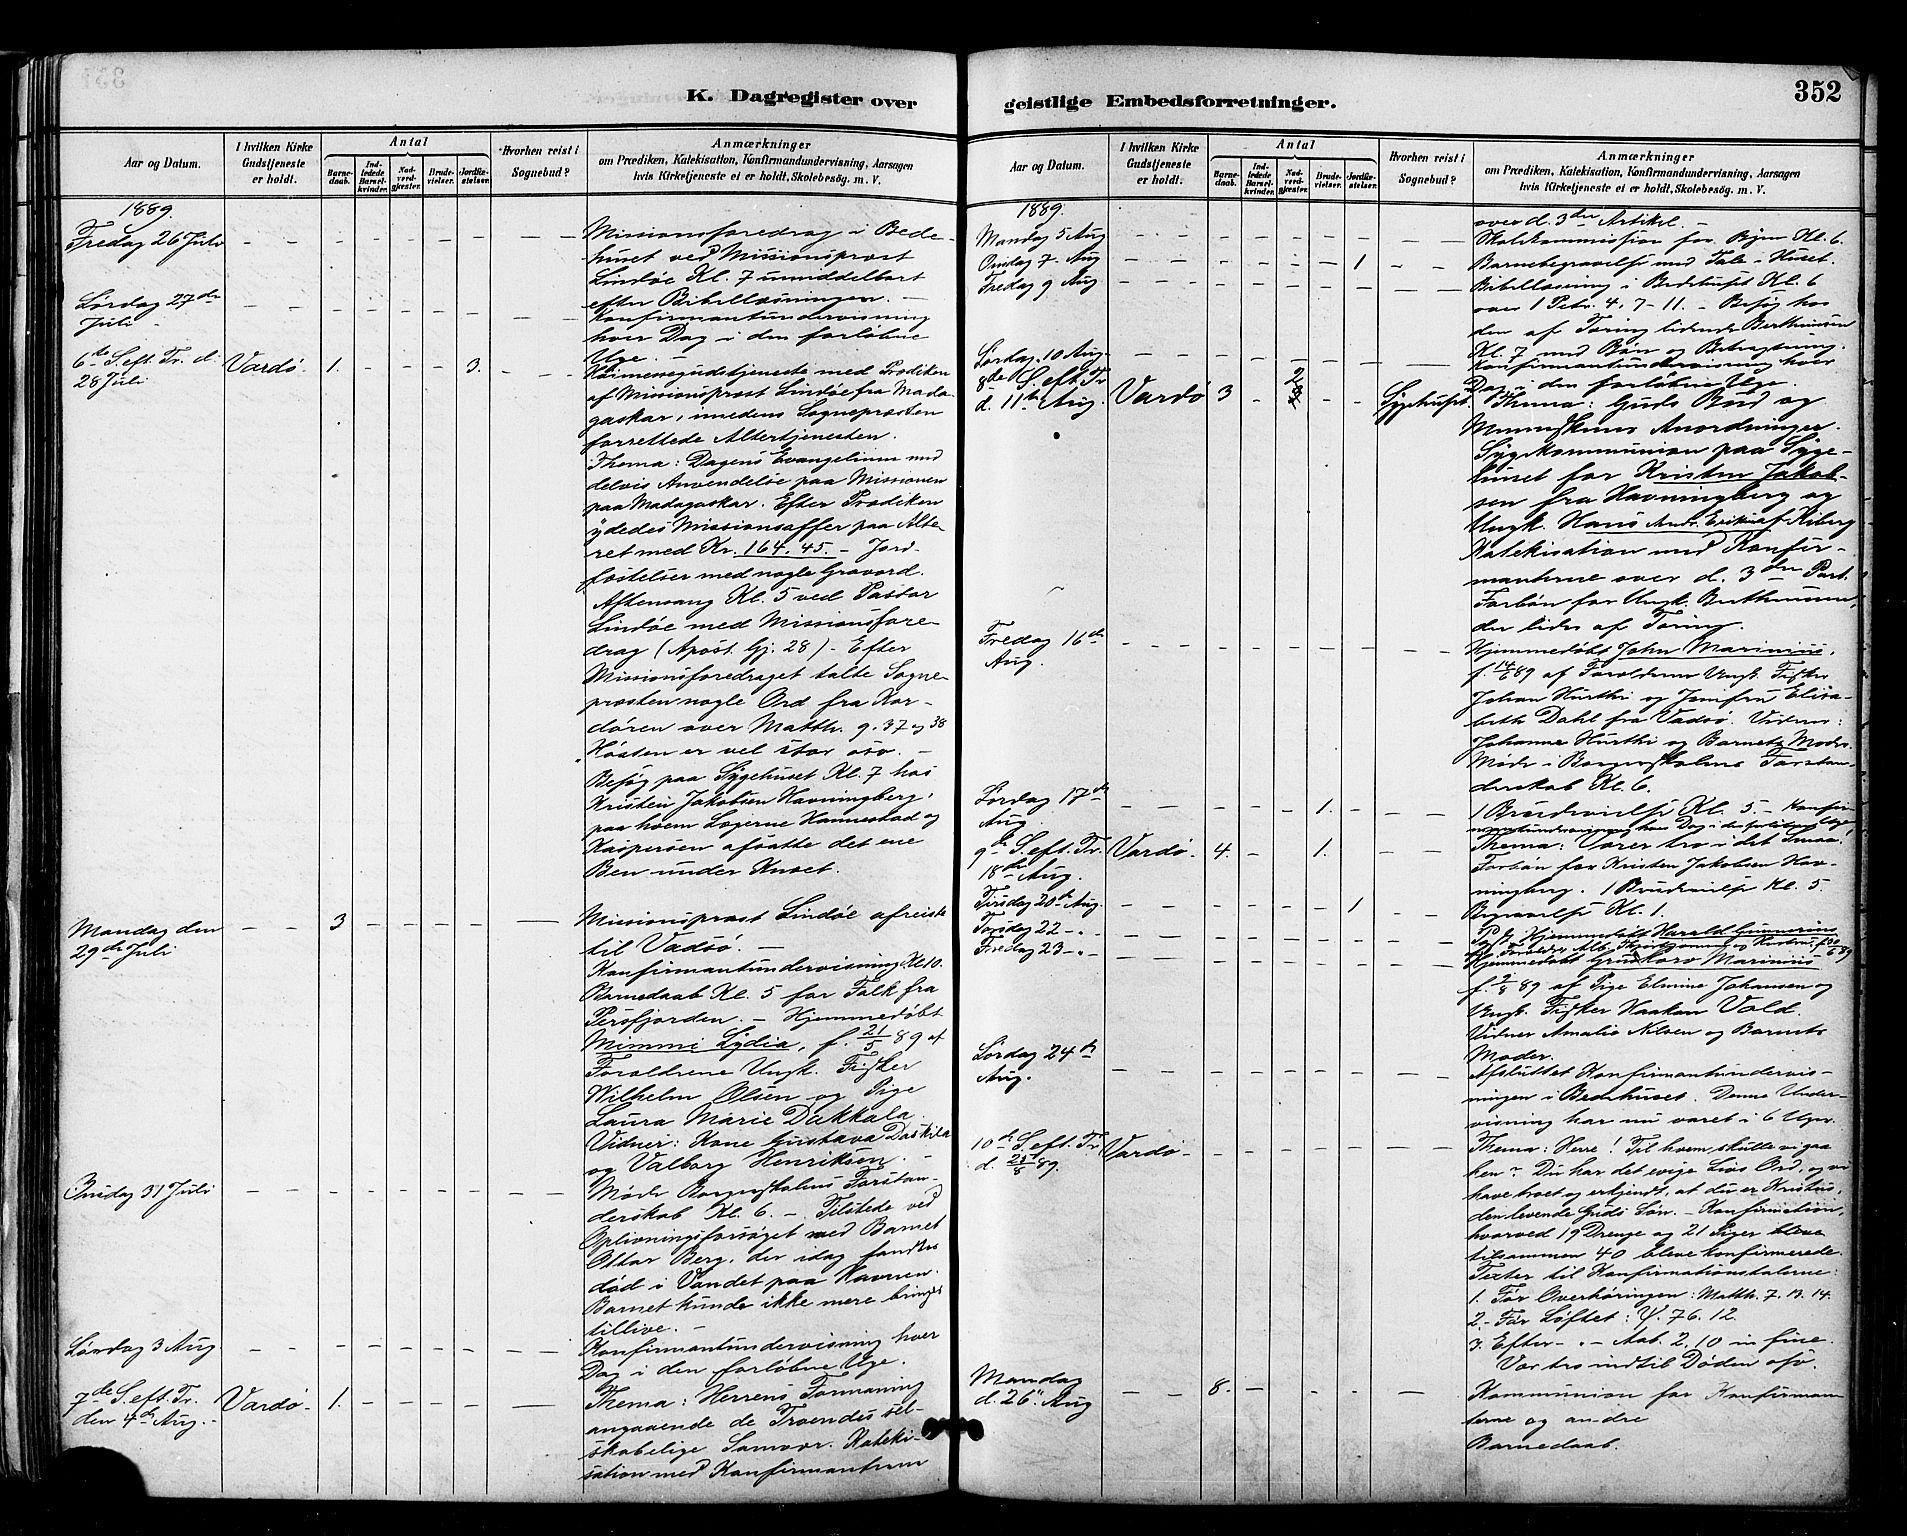 K. Dagregister over
Aar og Datum.
I hvilken Kirke Gudstjeneste er holdt.
Antal
Barnedaab.
Indledede Barselkvinder.
Nadverdgjester.
Brudevielser.
Jordfæstelser.
Hvorhen reist i Sognebud?
Anmærkninger
om Prædiken, Katekisation, Konfirmandundervisning, Aarsagen
hvis Kirketjeneste ei er holdt, Skolebesøg. m. V.
1889.
Fredag 26 Juli
Missionsforedrag i Bede-
huset ved Missionsprest
Lindöe Kl. 7 umiddelbart
efter Bibellæsningen. –
Lørdag 27de Juli
Konfirmantundervisning
hver Dag i den forløbne
Uge. –
6te S. eft. Tr. d. 28 Juli
Vardø
1.
3.
Høimessegudstjeneste med Prædiken
af Missionsprest Lindöe fra Mada-
gaskar, imedens Sognepresten
forrettede Altertjenesten.
Thema: Dagens Evangelium med
delvis Anvendelse paa Missionen
paa Madagaskar. Efter Prædiken
ydedes Missionsoffer paa Alte-
ret med Kr. 164.45. – Jord-
fæstelser med nogle Gravord.
Aftensang Kl. 5 ved Pastor
Lindöe med Missionsfore-
drag (Apost. Gj. 28) – Efter
Missionsforedraget talte Sogne-
presten nogle Ord fra Kor-
døren over Matth. 9. 37 og 38
"Høsten er vel stor osv. –
Besøg paa Sygehuset Kl. 7 hos
Kristen Jakobsen Havningberg,
paa hvem Lægerne Hannestad og
Kaspersen afsatte det ene
Ben under Knæet.
Mandag den 29de Juli
3
Missionsprest Lindöe afreiste
til Vadsö. –
Konfirmantundervisning Kl. 10.
Barnedaab Kl. 5 for Folk fra
Persfjorden. – Hjemmedøbt
Mimmi Lydia, f. 21/5 89 af
Forældrene Ungk. Fisker
Wilhelm Olsen og Pige
Laura Marie Dakkala.
Vidner: Kone Gustava Daskila
og Valborg Henriksen. –
Onsdag 31 Juli
Møde Borgerskolens Forstan-
derskab Kl. 6. – Tilstede ved
Oplivningsforsøget med Barnet
Ottar Berg, der idag fandtes
død i Vandet paa Havnen.
Barnet kunde ikke mere bringes
tillive. –
Lørdag 3 Aug
Konfirmantundervisning hver
Dag i den forløbne Uge.
7de S. eft. Tr. den 4de Aug.
Vardø
1.
Thema: Herrens Formaning
angaaende de Troendes sel-
skabelige Samvær. Kateki-
sation med Konfirmanterne
geistlige Embedsforretninger.
352
Aar og Datum.
I hvilken Kirke Gudstjeneste er holdt.
Antal
Barnedaab.
Indledede Barselkvinder.
Nadverdgjester.
Brudevielser.
Jordfæstelser.
Hvorhen reist i Sognebud?
Anmærkninger
om Prædiken, Katekisation, Konfirmandundervisning, Aarsagen
hvis Kirketjeneste ei er holdt, Skolebesøg. m. V.
1889.
over d. 3die Artikel. –
Mandag 5 Aug
Skolekommission for Byen Kl. 6.
Onsdag 7. Aug
1
Barnebegravelse med Tale i Huset.
Fredag 9 Aug
Bibellæsning i Bedehuset Kl. 6
over 1 Petr. 4, 7-11. – Besøg hos
den af Tæring lidende Berthinisen
Kl. 7 med Bøn og Betragtning.
Lørdag. 10 Aug.
Konfirmantundervisning hver
Dag i den forløbne Uge.
8de S. eft. Tr. d. 11te Aug.
Vardø
3
2
Sygehuset.
Thema: Guds Bud og
Menneskenes Anordninger.
Sygekommunion paa Syge-
huset for Kristen Jakob-
sen fra Havningberg og
Ungk. Hans Andr. Eriksen af Kiberg
Katekisation med Konfir-
manterne over d. 3die Part.
Forbøn for Ungk. Berthinisen,
der lider af Tæring.
Fredag 16de Aug.
Hjemmedøbt John Marinius,
f. 14/6 89 af Forældrene Ungk. Fisker
Johan Hurthi og Jomfru Elisa-
beth Dahl fra Vadsø. Vidner:
Johanne Hurthi og Barnets Moder.
Møde i Borgerskolens Forstan-
derskab Kl. 6.
Lørdag 17de Aug.
1.
1 Brudevielse Kl. 5 – Konfir-
mantundervisning hver Dag i den forløbne Uge.
9de S. eft. Tr. 18de Aug.
Vardø
4.
1.
Thema: Værer tro i det Smaa.
Forbøn for Kristen Jakobsen Hav-
ningberg. 1 Brudevielse Kl. 5.
Tirsdag 20de Aug.
1
Begravelse Kl. 1.
Torsdag 22 – "
Hjemmedøbt Harald Gunnerius
Fredag 23 – "
Hjemmedøbt Marinius
f. 2/8 89 af Pige Elmine Johansen og
Ungk. Fisker Haakon Vold.
Vidner Amalie Nilsen og Barnets
Moder.
Lørdag 24de Aug.
Afsluttet Konfirmantundervis-
ningen i Bedehuset. Denne Under-
visning har nu varet i 6 Uger.
10de S. eft. Tr. d. 25/8 89.
Vardø
Thema: Herre! Til hvem skulle vi gaa
hen? Du har det evige Livs Ord, og vi
have troet og erkjendt, at du er Kristus,
den levende Guds Søn. – Konfirmation,
hvorved 19 Drenge og 21 Piger bleve
tilsammen 40 bleve konfirmerede.
Texter til Konfirmationstalerne:
1. Før Overhøringen: Matth. 7. 13. 14.
2. Før Løftet: Ψ. 76. 12.
3. Efter – " – Aab. 2. 10 in fine.
Vær tro indtil Døden osv.
Mandag d. 26 Aug
8.
Kommunion for Konfirman-
terne og andre
Barnedaab.